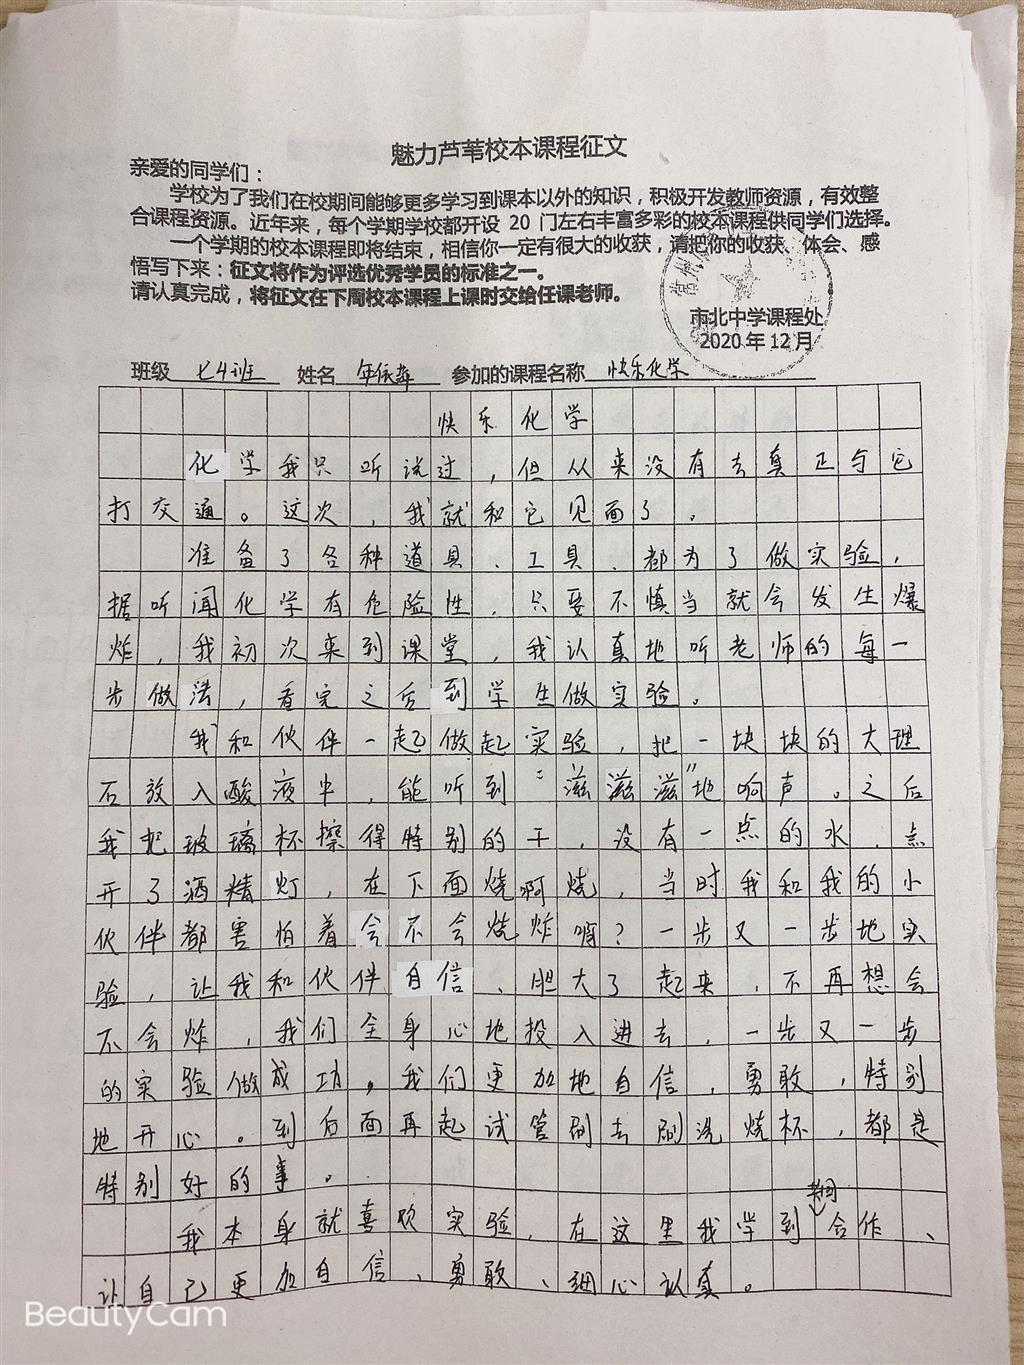 魅力芦苇校本课程征文
亲爱的同学们：
学校为了我们在校期间能够更多学习到课本以外的知识，积极开发教师资源，有效整
合课程资源。近年来，每个学期学校都开设 20 门左右丰富多彩的校本课程供同学们选择。
一个学期的校本课程即将结束，相信你一定有很大的收获，请把你的收获、体会、感
悟写下来：征文将作为评选优秀学员的标准之一。
请认真完成，将征文在下周校本课程上课时交给任课老师。
市北中学课程处
2020 年 12 月
班级 七4班 姓名 年依 参加的课程名称 快乐化学
快乐化学
化学我只听说过，但从来没有去真正与它
打交通。这次，我就和它见面了。
准备了各种道具、工具，都为了做实验，
据听闻化学有危险性，只要不慎当就会发生爆
炸，我初次来到课堂，我认真地听老师的每一
步做法，看完之后到学生做实验。
我和伙伴一起做起实验，把一块块的大理
石放入酸液中，能听到“滋滋滋”地响声。之后
我把玻璃杯擦得特别的干，没有一点的水，点
开了酒精灯，在下面烧啊烧，当时我和我的小
伙伴都害怕着会不会烧炸啊？一步又一步地实
验，让我和伙伴自信、胆大了起来，不再想会
不会炸，我们全身心地投入进去，一步又一步
的实验做成功，我们更加地自信，勇敢，特别
地开心。到后面再起试管刷去刷洗烧杯，都是
特别好的事。
我本身就喜欢实验，在这里我学到合作、
让自己更加自信、勇敢、细心认真。
BeautyCam